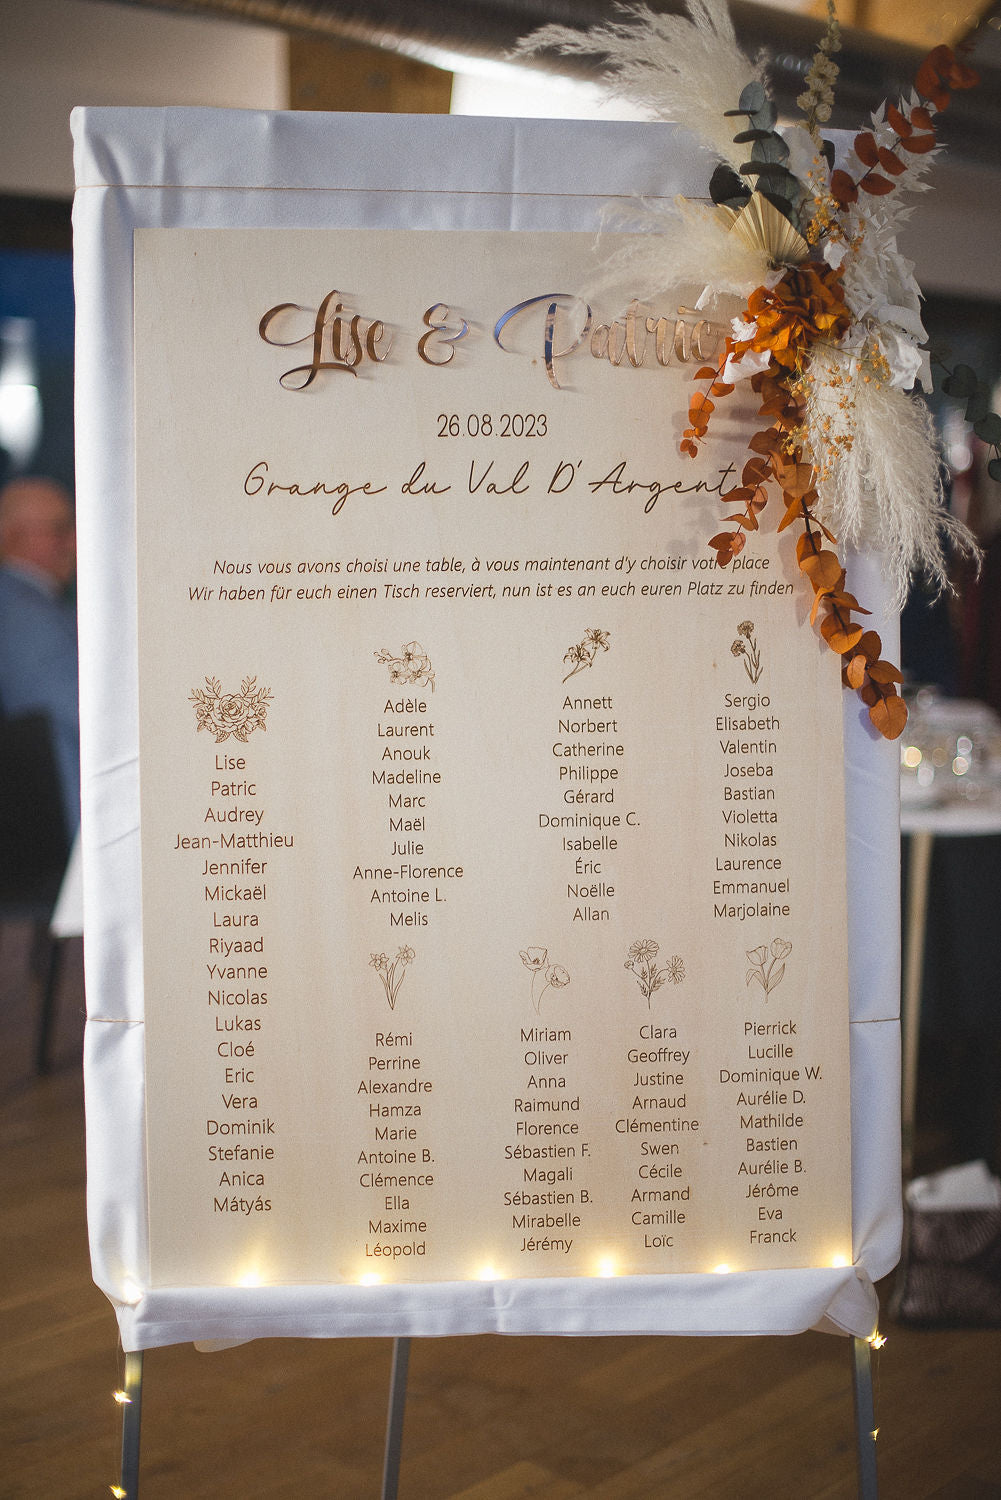 Lise & Patric
26.08.2023
Grange du Val D'Argent
Nous vous avons choisi une table, à vous maintenant d'y choisir votre place
Wir haben für euch einen Tisch reserviert, nun ist es an euch euren Platz zu finden
Lise
Patric
Audrey
Jean-Matthieu
Jennifer
Mickaël
Laura
Riyaad
Yvanne
Nicolas
Lukas
Cloé
Eric
Vera
Dominik
Stefanie
Anica
Mátyás
Adèle
Laurent
Anouk
Madeline
Marc
Maël
Julie
Anne-Florence
Antoine L.
Melis
Annett
Norbert
Catherine
Philippe
Gérard
Dominique C.
Isabelle
Éric
Noëlle
Allan
Sergio
Elisabeth
Valentin
Joseba
Bastian
Violetta
Nikolas
Laurence
Emmanuel
Marjolaine
Rémi
Perrine
Alexandre
Hamza
Marie
Antoine B.
Clémence
Ella
Maxime
Léopold
Miriam
Oliver
Anna
Raimund
Florence
Sébastien F.
Magali
Sébastien B.
Mirabelle
Jérémy
Clara
Geoffrey
Justine
Arnaud
Clémentine
Swen
Cécile
Armand
Camille
Loïc
Pierrick
Lucille
Dominique W.
Aurélie D.
Mathilde
Bastien
Aurélie B.
Jérôme
Eva
Franck